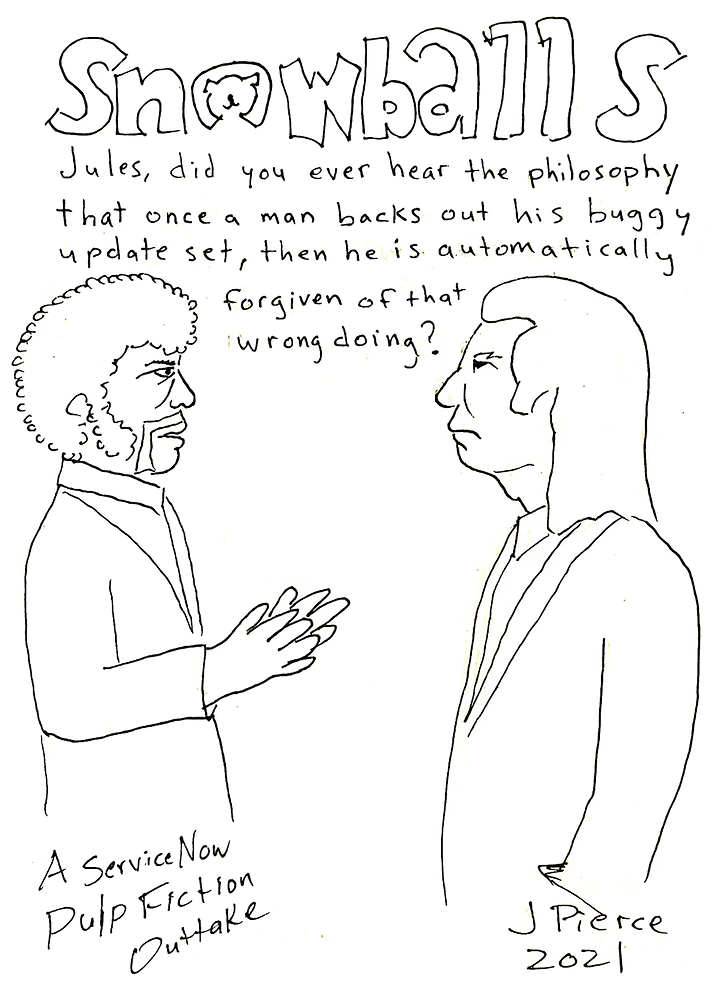 Snowballs
Jules, did you ever hear the philosophy
that once a man backs out his buggy
update set, then he is automatically
forgiven of that
wrong doing?
A ServiceNow
Pulp Fiction
Outtake
J Pierce
2021